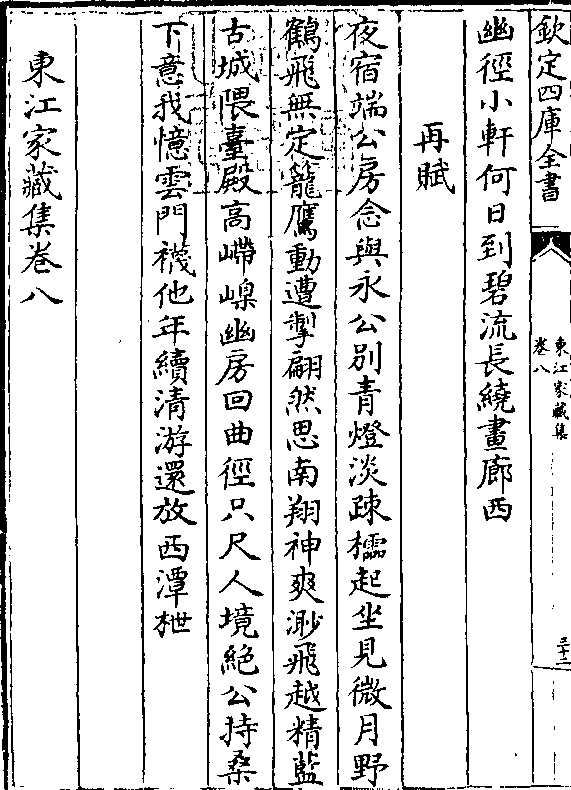 欽定四庫全書
東江家藏集
卷八
三十二
幽徑小軒何日到碧流長繞畫廊西
再賦
夜宿端公房念與永公別青燈淡疎櫺起坐見微月野
鶴飛無定籠鷹動遭掣翩然思南翔神爽渺飛越精藍
古城隈臺殿高㠛嵲幽房回曲徑只尺人境絕公持桑
下意我憶雲門襪他年續清游還放西潭枻
東江家藏集卷八